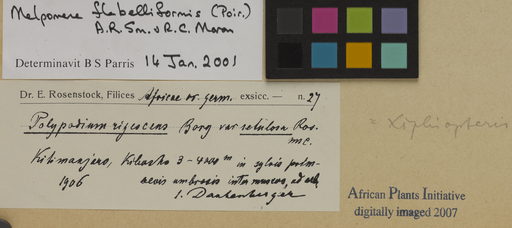 Melpomene flabelliformis (Poir.)
A.R. Sm. & R.C. Moran
Determinavit B S Parris 14 Jan. 2001
Dr. E. Rosenstock, Filices Africae or. germ. exsicc. — n. 27
Polypodium rigescens Bory var setulosa Ros.
Kilimanjaro, Kibosho 3-4000 m in sylvis prim-
aevis umbrosis inter muscos, ad arb.
1906
= Xiphopteris
African Plants Initiative
digitally imaged 2007